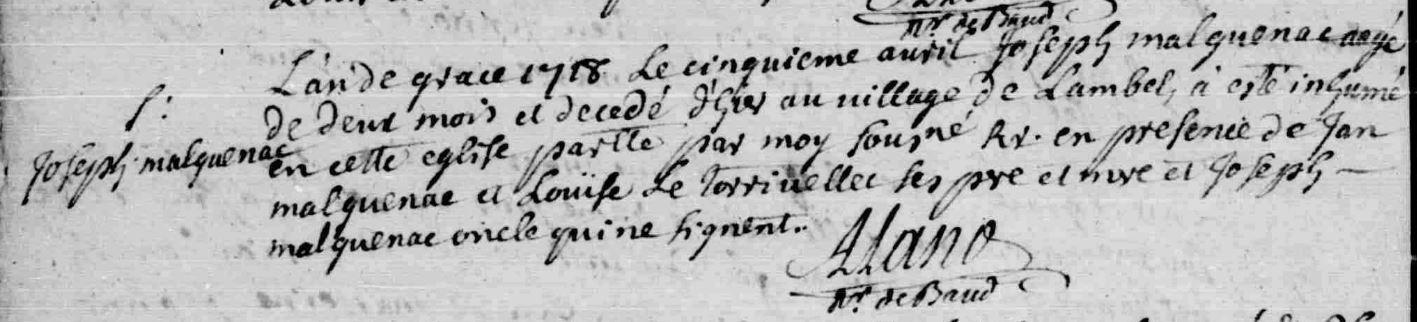 Rr. de Baud
L'an de grace 1718 Le cinquieme auril Joseph malquenac aagé
de deux mois et decedé d'hier au village de Lambel, à esté inhumé
S:
Joseph malquenac
en cette eglise parlle par moy sousné Rr. en presence de Jan
malquenac et Louïse Le Torriuellec ses pre et mre et Joseph
malquenac oncle qui ne signent.
Allano
Rr. de Baud